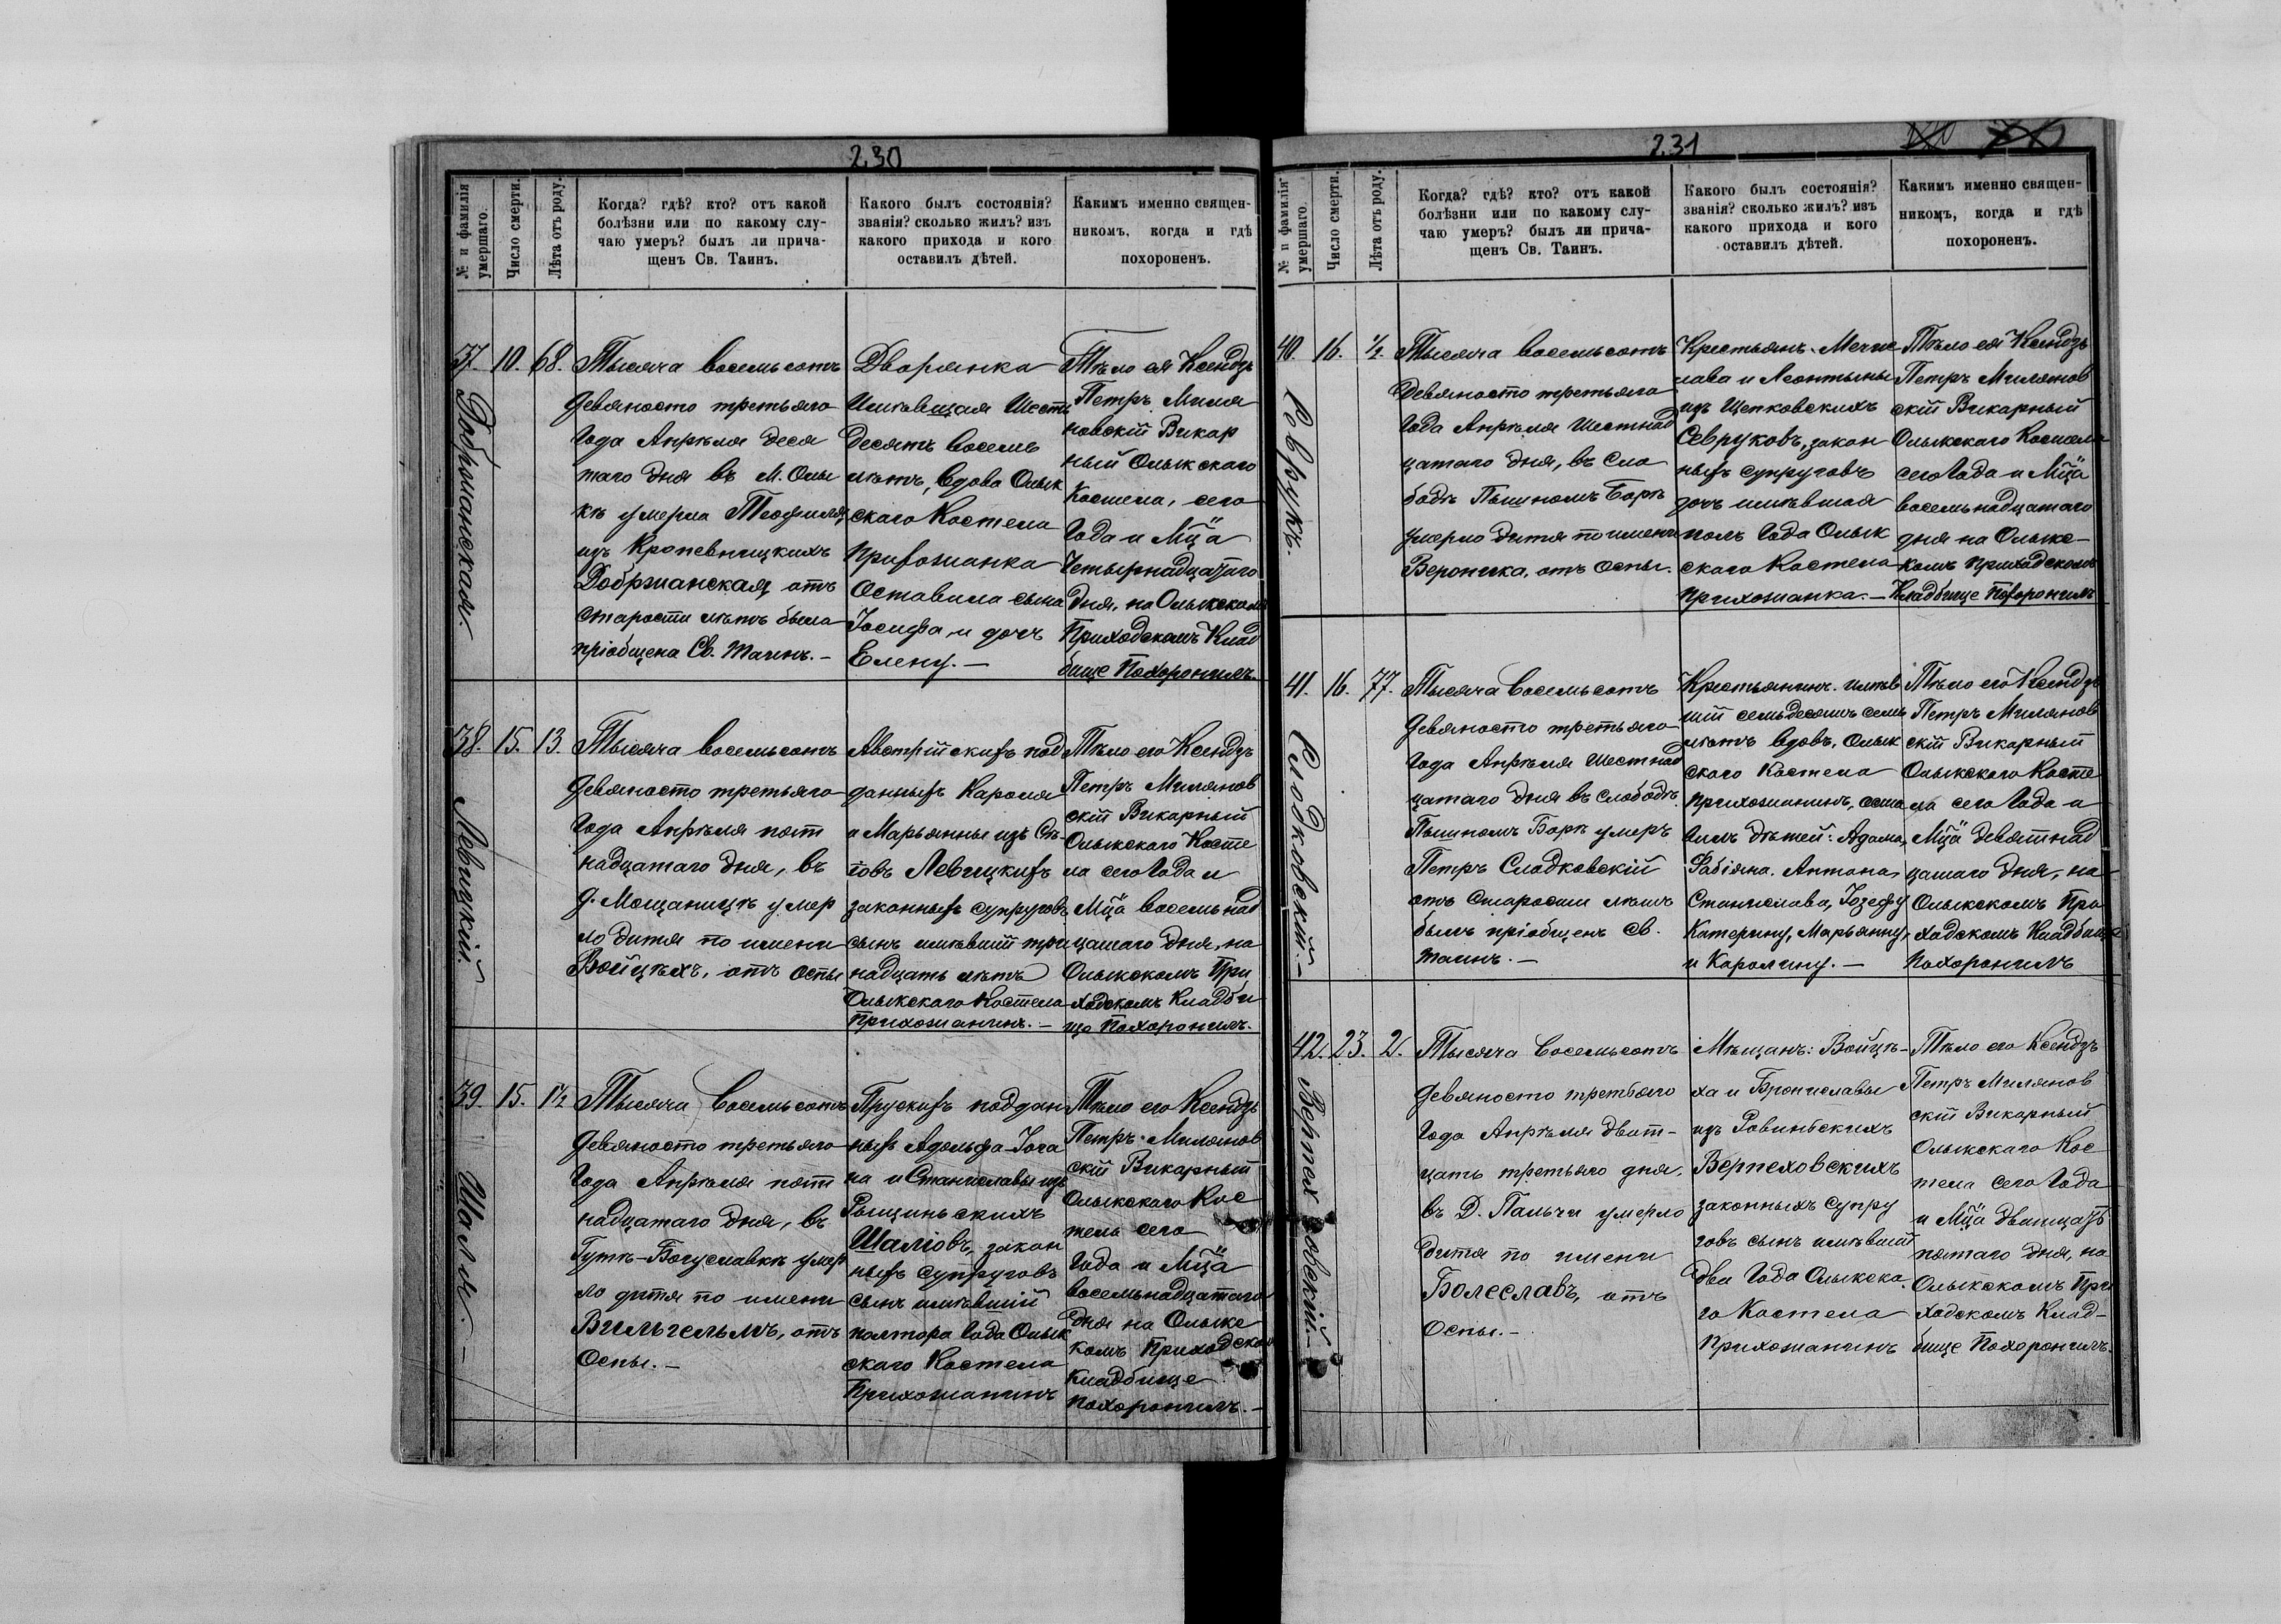 230
№ и фамилія умершаго.
Число смерти.
Лѣта отъ роду.
Когда? гдѣ? кто? отъ какой
болѣзни или по какому слу-
чаю умеръ? былъ ли прича-
щенъ Св. Таинъ.
Какого былъ состоянія?
званія? сколько жилъ? изъ
какого прихода и кого
оставилъ дѣтей.
Какимъ именно священ-
никомъ, когда и гдѣ
похороненъ.
37.
Добржанская.
10.
68.
Тысяча восемьсотъ
девяносто третьяго
Года Апрѣля деся
таго дня въ М. Олы
кѣ умерла Теофиля
изъ Кропевницкихъ
Добржанская, отъ
старости лѣтъ была
пріобщена Св. Таинъ.–
Дворянка
Имѣвщая Шесть
десятъ восемь
лѣтъ, вдова Олык
скаго Костела
прихожанка
Оставила сына
Іосифа, и дочь
Елену.–
Тѣло ея Ксендзъ
Петръ Миля
новскій Викар
ный Олыкскаго
Костела, сего
Года и Мца
Четырнадцатаго
Дня, на Олыкскомъ
Приходскомъ Клад
бище Похоронилъ.
38.
Левицкій.
15.
13.
Тысяча восемьсотъ
девяносто третьяго
Года Апрѣля пят
надцатаго дня, въ
д. Мощаницѣ умер
ло дитя по имени
Войцѣхъ, отъ оспы
Австрійскихъ под
данныхъ Кароля
и Марьянны изъ Сѣ
говъ Левицкихъ
законныхъ супруговъ
сынъ имѣвшій три
надцать лѣтъ
Олыкскаго Костела
Прихожанинъ.–
Тѣло его Ксендзъ
Петръ Милянов
скій Викарный
Олыкскаго Косте
ла сего Года и
Мца восемьнад
цатаго дня, на
Олыкскомъ При
ходскомъ Кладби
ще Похоронилъ.
39.
Шалм.–
15.
1½
Тысяча восемьсотъ
девяносто третьяго
Года Апрѣля пят
надцатаго дня, въ
Гутѣ-Богуславкѣ умер
ло дитя по имени
Вильгельмъ, отъ
Оспы.–
Прускихъ поддан
ныхъ Адольфа-Іога
на и Станиславы изъ
Рыщиньскихъ
Шалмовъ, закон
ныхъ супруговъ
сынъ имѣвшій
полтора Года Олык
скаго Костела
Прихожанинъ
Тѣло его Ксендзъ
Петръ Милянов
скій Викарный
Олыкскаго Кос
тела сего
Года и Мца
восемьнадцатаго
дня на Олыкс
комъ Приходском
Кладбище
Похоронилъ.–
231
№ и фамилія умершаго.
Число смерти.
Лѣта отъ роду.
Когда? гдѣ? кто? отъ какой
болѣзни или по какому слу-
чаю умеръ? былъ ли прича-
щенъ Св. Таинъ.
Какого былъ состоянія?
званія? сколько жилъ? изъ
какого прихода и кого
оставилъ дѣтей.
Какимъ именно священ-
никомъ, когда и гдѣ
похороненъ.
40.
Саврукъ.
16.
½.
Тысяча восемьсотъ
девяносто третьяго
Года Апрѣля Шестнад
цатаго дня, въ Сло
бодѣ Пышномъ Борѣ
умерло дитя по имени
Вероника, отъ оспы.
Крестьянъ Мечис
лава и Леонтыны
изъ Щепковскихъ
Севруковъ, закон
ныхъ супруговъ
дочь имѣвшая
полъ Года Олык
скаго Костела
Прихожанка.–
Тѣло ея Ксендзъ
Петръ Милянов
скій Викарный
Олыкскаго Костела
сего Года и Мца
восемьнадцатаго
дня на Олыкс–
комъ Приходскомъ
Кладбище Похоронилъ
41.
Сладковскій.–
16.
77.
Тысяча восемьсотъ
девяносто третьяго
Года Апрѣля Шестнад
цатаго дня въ Слободѣ
Пышномъ Борѣ умеръ
Петръ Сладковскій
отъ старости лѣтъ
былъ пріобщенъ Св.
Таинъ.–
Крестьянинъ имѣв
шій семьдесятъ семь
лѣтъ вдовъ, Олык
скаго Костела
прихожанинъ, оста
вилъ дѣтей: Адама,
Фабіяна, Антона,
Станислава, Іозефу
Катерину, Марьянну,
и Каролину.–
Тѣло его Ксендзъ
Петръ Милянов
скій Викарный
Олыкскаго Косте
ла сего Года и
Мца девятнад
цатаго дня, на
Олыкскомъ При
ходскомъ Кладбище
Похоронилъ
42.
Верпеховскій.–
23.
2.
Тысяча восемьсотъ
девяносто третьяго
Года Апрѣля дват–
цать третьяго дня,
въ Д. Пальчи умерло
дитя по имени
Болеславъ, отъ
Оспы.–
Мѣщанъ: Войцѣ–
ха и Брониславы
изъ Ровинскихъ
Верпеховскихъ
законныхъ супру
говъ сынъ имѣвшій
два Года Олыкска
го Костела
Прихожанинъ
Тѣло его Ксендзъ
Петръ Милянов
скій Викарный
Олыкскаго Кос
тела сего Года
и Мца двадцать
пятаго дня, на
Олыкскомъ При
ходскомъ Клад–
бище Похоронилъ.